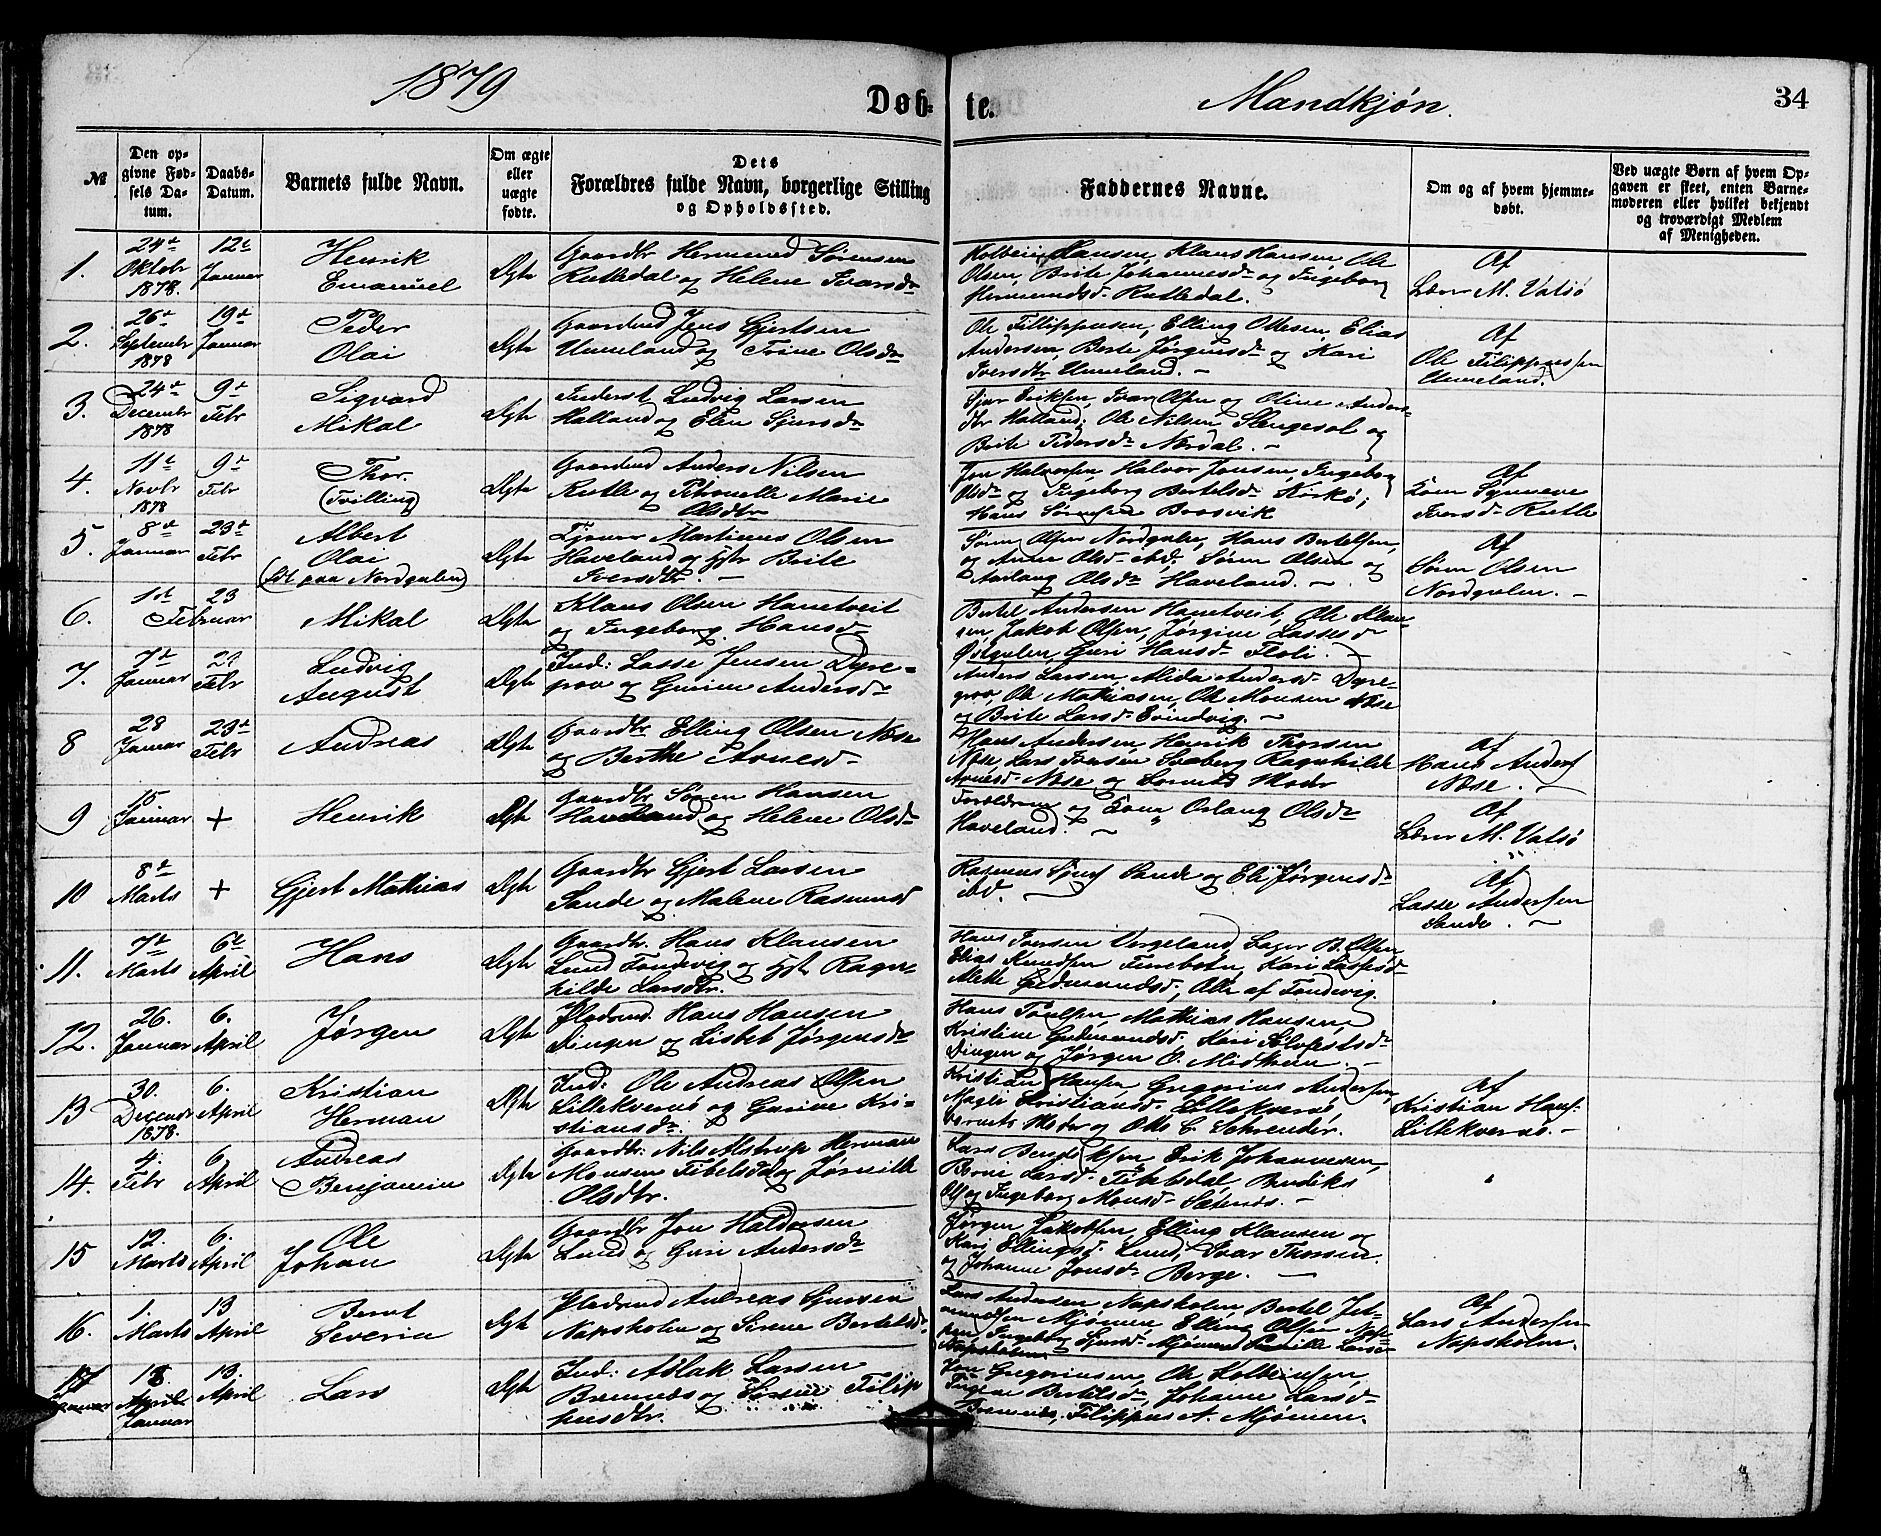 1879
Døb- te.
Mandkjøn.
34
№
Den op-
givne Fød-
sels Da-
tum.
Daabs-
Datum.
Barnets fulde Navn.
Om ægte
eller
uægte
fødte.
Dets
Forældres fulde Navn, borgerlige Stilling
og Opholdssted.
Faddernes Navne.
Om og af hvem hjemme-
døbt.
Ved uægte Børn af hvem Op-
gaven er skeet, enten Barne-
moderen eller hvilket bekjendt
og troværdigt Medlem
af Menigheden.
1.
24de Oktobr 1878.
12te Januar
Henrik
Emanuel
Ægte
Gaardbr Hermund Sørensen
Rutledal og Helene Ivarsdtr
Kolbein Hansen, Klaus Hansen, Ole
Olsen, Brite Johannesdtr og Ingeborg
Hermundsd. Rutledal.
Af
Lærer M. Vatsö
2.
26de Septembr 1878
19de Januar
Peder
Olai
Ægte
Gaardmd Jens Gjertsen
Unneland og Trine Olsdtr
Ole Fillippusen, Elling Ottesen, Elias
Andersen, Berte Jørgensdtr og Kari
Iversdtr Unneland. -
Af
Ole Filippussen
Unneland.
3.
24de Decembr 1878
9de Febr
Sigvard
Mikal
Ægte
Inderst Ludvig Larsen
Halland og Elen Sjursdtr
Sjur Eriksen, Ivar Olsen og Oline Anders-
dtr Halland; Ole Nilsen Slengesol og
Brite Pedersdtr Nordal. -
4.
11te Novbr 1878
9de Febr
Thor
(Tvilling)
Ægte
Gaardmd Anders Nilsen
Rutle og Petronelle Marie
Olsdtr
Jon Halvorsen, Halvor Jonsen, Ingeborg
Olsdtr og Ingeborg Bertelsd. Kirkö;
Hans Sørensen Brosvik
Af
Kone Synneve
Iversd. Rutle
5.
8de Januar
23de Febr
Albert
Olai
(fdt paa Nordgulen)
Ægte
Tjener Martinus Olsen
Haveland og Hst Brite
Iversdtr. -
Sören Olsen Nordgulen, Hans Bertelsen,
og Anne Olsd. ibd. Sören Olsen og
Aarlaug Olsdtr Haveland. -
Af
Sören Olsen
Nordgulen. -
6.
1st 23
Februar
Mikal
Ægte
Klaus Olsen Hanetveit
og Ingeborg Hansdtr
Bertel Andersen Hanetveit, Ole Klau-
sen, Jakob Olsen, Jørgine Lassesd
Östgulen, Guri Hansd. Floli. -
7.
7de Januar
22 Febr
Ludvig
August
Ægte
Ind: Lasse Jensen Dyre-
grov og Gurine Andersdtr
Anders Larsen, Alida Andersd. Dyre-
grov, Ole Mathiasen, Ole Monsen Næse
og Brite Larsd. Evindvig. -
8
28 Januar
23de Febr
Andreas
Ægte
Gaardbr Elling Olsen Næse
og Berthe Arnesd.
Hans Andersen, Henrik Thorsen
Næse, Lars Iversen Svaberg Ragnhilde
Arnesd. Næse og barnets Moder
Af
Hans Anders
Næse. -
9
15 Januar
+
Henrik
Ægte
Gaardbr Sören Hansen
Haveland og Helene Olsdtr
Forældrene og Kone Orlaug Olsdtr
Haveland. -
Af
Lærer M. Vatsö
10
8de Marts
+
Gjert Mathias
Ægte
Gaardbr Gjert Larsen
Sande og Malene Rasmusd
Rasmus Sjurs Sande og Eli Jörgensdtr
ibd. -
Af
Lasse Andersen
Sande. -
11.
7de Marts
6te April
Hans
Ægte
Gaardbr. Hans Klausen
Lund Tondevig og Hst Ragn-
hilde Larsdtr.
Hans Iversen Vergeland, Lager B. Olsen,
Elias Knudsen Furebotn, Kari Lassesd.
Alette Gudmundsd., Alle af Tondevig.
12.
26. Januar
6. April
Jørgen
Ægte
Pladsmd. Hans Hansen
Dingen og Lisbet Jørgensdtr
Hans Paulsen, Mathias Hansen,
Kristine Gudmundsd., Kari Sölvestsdtr
Dingen og Jørgen O. Midthun. -
13
30. Decembr 1878.
6. April
Kristian
Herman
Ægte
Ind: Ole Andreas Olsen
Lillekvernö og Gurine Kri-
stiansdtr.
Kristian Hansen, Gregorius Andersen,
Magli Kristiansd. Lillekvernö,
barnets Moder og Otto C. Schreuder.
Af
Kristian Hans:
Lillekvernö. -
14.
4. Febr
6. April
Andreas
Benjamin
Ægte
Gaardbr: Nils Alstrup Herman
Monsen Tibelsdal og Jørnilde
Olsdtr.
Lars Bendiksen, Erik Johannesen,
Larsd. Tibelsdal Bendiks
Ols og Ingeborg Monsd. -
15
12. Marts
6. April
Ole
Johan
Ægte
Gaardbr Jon Haldorsen
Lund og Guri Andersdtr
Jørgen Jakobsen, Elling Klausen og
Kari Ellingsd. Lund, Ivar Thorsen
og Johanne Jonsdtr Berge. -
16.
1. Marts
13 April
Bernt
Severin
Ægt
Pladsmd Andreas Sjursen
Napsholm og Sirene Bertelsd.
Lars Andersen Napsholm Bertel Jet-
mundsen Mjømen, Elling Olsen
Ingeborg Sjursd. Mjømen Larsd.
Napsholmen
Af
Lars Andersen
Napsholm.
17
18 April
Januar
13. April
Lars
Ægte
Ind: Aslak Larsen
Bremnes og Filip
pusdtr.
Jon Gregoriusen, Ole Kolbeinsen,
Ingene Bertelsdtr, Johanne Larsd
Bremnes, Filippus A. Mjömen.